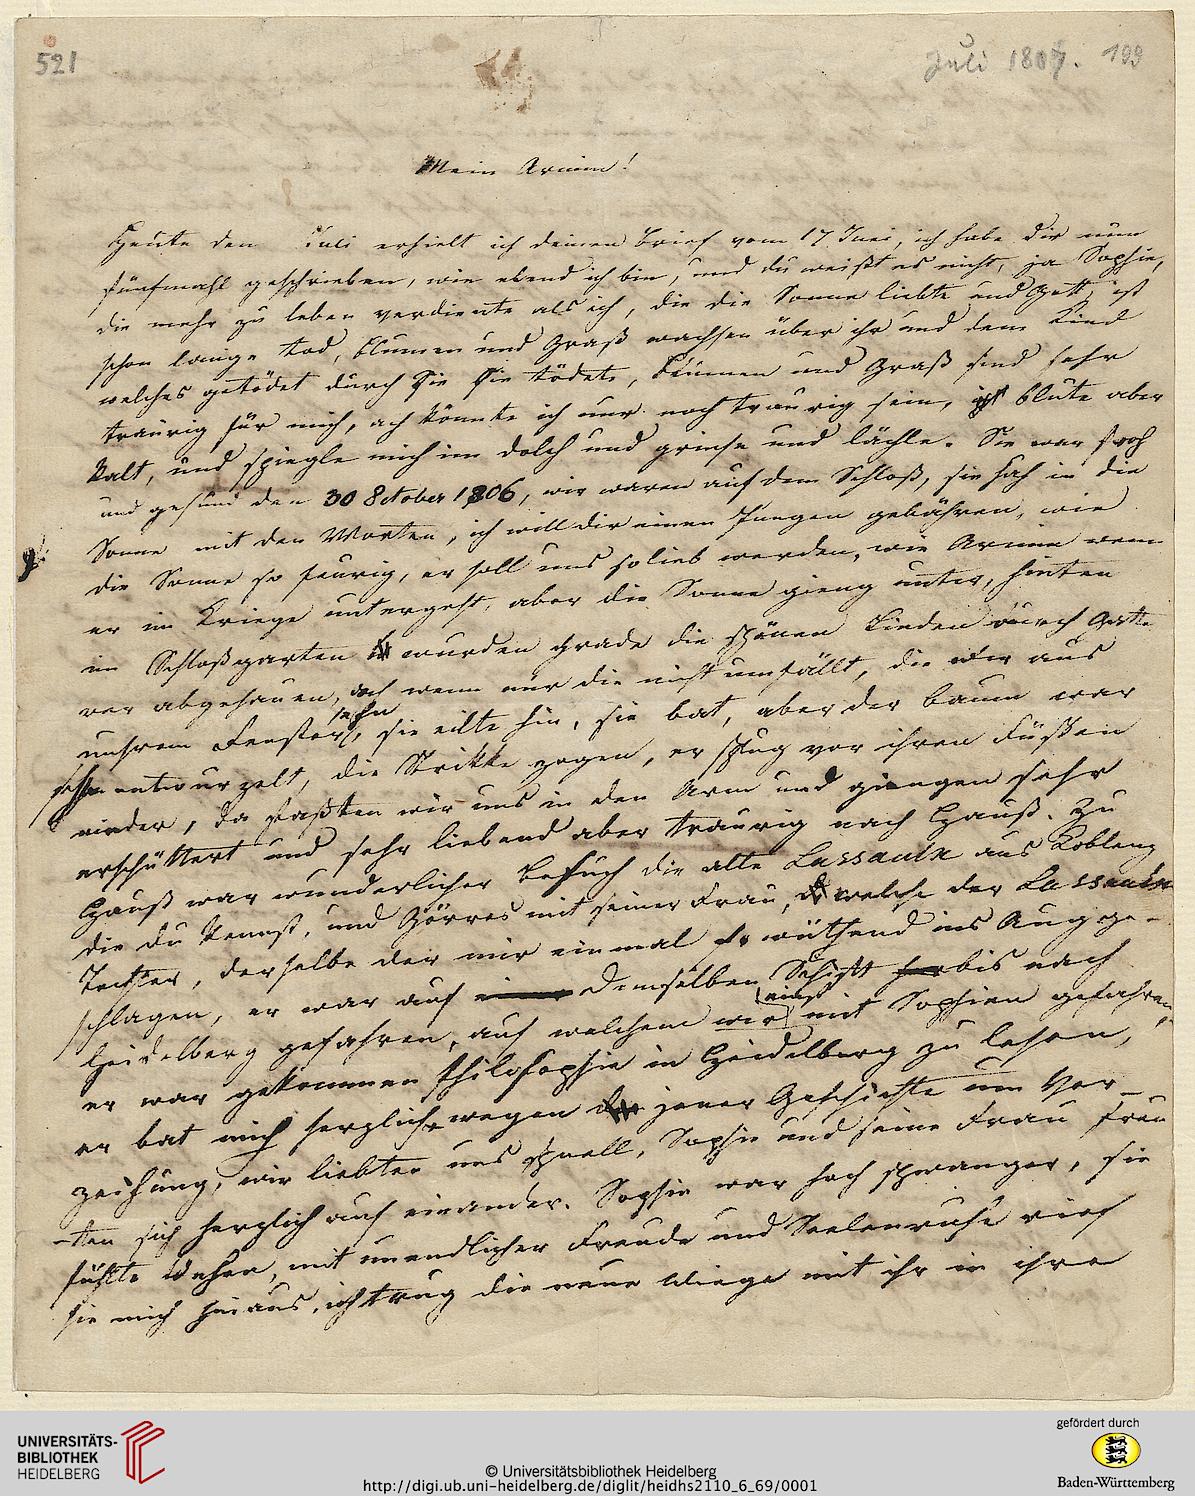 521
Juli 1807. 199
Mein Arnim!
Heute den Juli erhielt ich deinen Brief vom 17 Juni, ich habe dir nun
fünfmahl geschrieben, wie elend ich bin, und du weißt es nicht, ja Sophie,
die mehr zu leben verdiente als ich, die die Sonne liebte und Gott, ist
schon lange tod, Blumen und Graß wachsen über ihr und dem Kind
welches getödet durch Sie Sie tödete, Blumen und Graß sind sehr
traurig für mich, ach könnte ich nur noch traurig sein, ich blute aber
kalt, und spiegle mich im dolch und grinse und lächle. Sie war froh
und gesund den 30 October 1806, wir waren auf dem Schloß, sie sah in die
Sonne mit den Worten, ich will dir einen Jungen gebähren, wie
die Sonne so feurig, er soll uns so lieb werden, wie Arnim wenn
er im Kriege untergeht, aber die Sonne gieng unter, hinten
im Schloßgarten wurden grade die schönen Linden durch
abgehauen, ach wenn nur die nicht umfällt, die wir aus
unsrem Fenster sehn, sie eilte hin, sie bat, aber der baum war
schon entwurzelt, die Strikke zogen, er schlug vor ihren Füßen
nieder, da faßten wir uns in den Arm und giengen sehr
erschüttert und sehr liebend aber traurig nach Hauß. Zu
Hauß war wunderlicher Besuch die alte Lassaulx aus Koblenz
die du kennst, und Görres mit seiner Frau, welche der Lassaulx
Tochter, derselbe der mir einmal so wüthend ins Aug ge-
schlagen, er war auf demselben Schiff bis nach
Heidelberg gefahren, auf welchem wir einst mit Sophien gefahren,
er war gekommen Philosophie in Heidelberg zu lesen,
er bat mich herzlich wegen jener Geschichte um Ver-
zeihung, wir liebten uns schnell, Sophie und seine Frau freu
-ten sich herzlich auf einander. Sophie war hoch schwanger, sie
fühlte Wehen, mit unendlicher Freude und Seelenruhe rief
sie mich hinaus, ich trug die neue Wiege mit ihr in ihre
UNIVERSITÄTS-
BIBLIOTHEK
HEIDELBERG
© Universitätsbibliothek Heidelberg
http://digi.ub.uni-heidelberg.de/diglit/heidhs2110_6_69/0001
gefördert durch
Baden-Württemberg